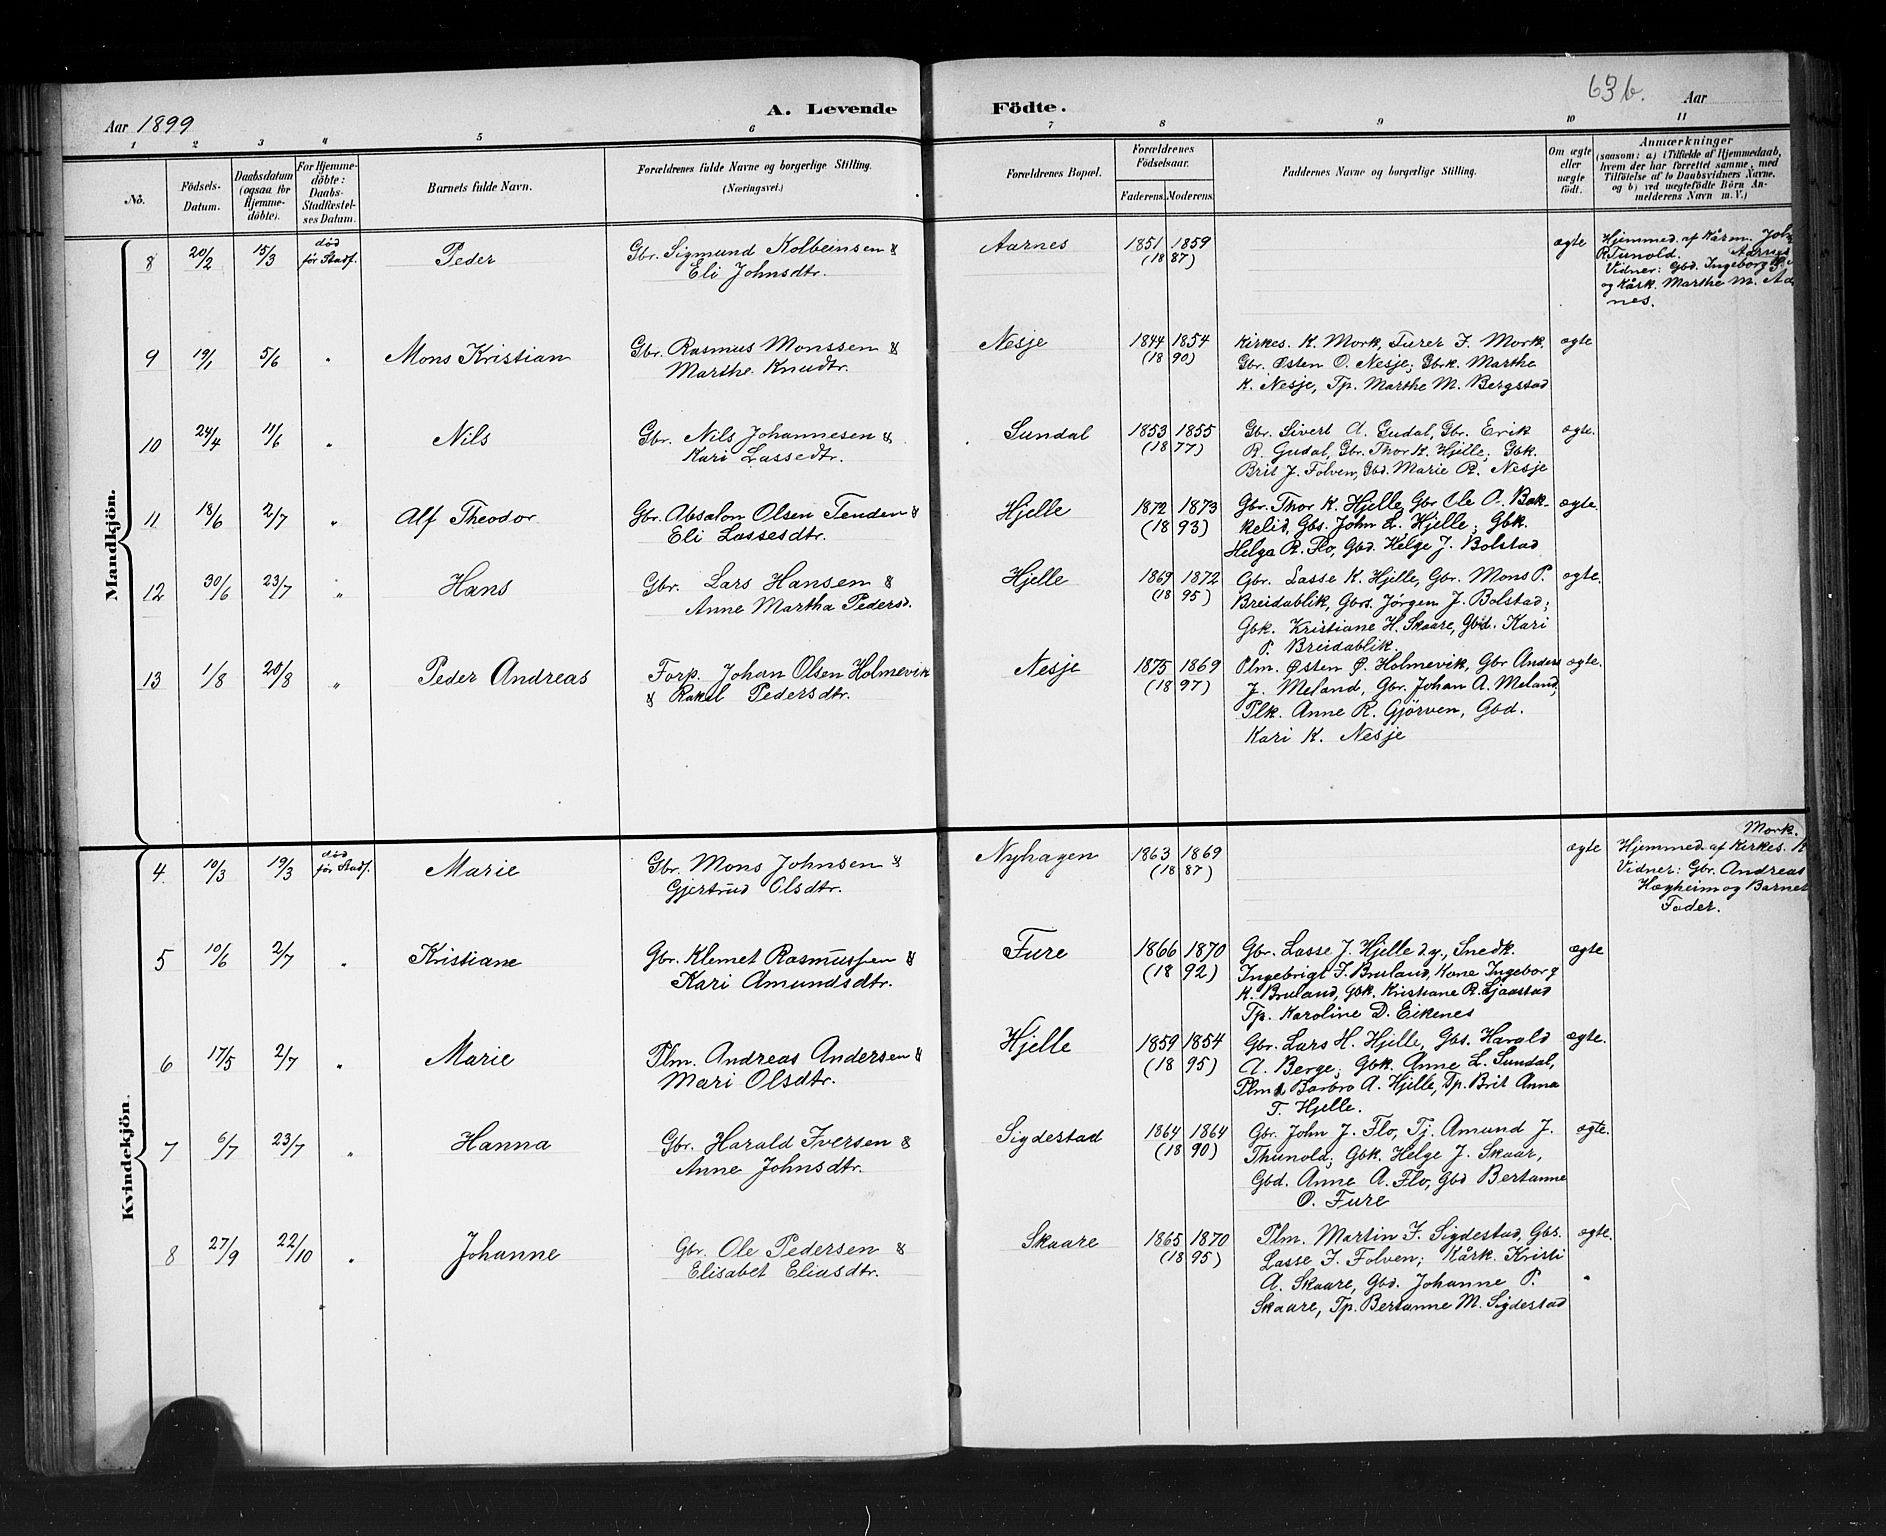 63b.
A. Levende Födte.
Aar 1899
Aar
1 2 3 4 5 6 7 8 9 10 11
No.
Födsels-
Datum.
Daabsdatum
(ogsaa for
Hjemme-
döbte).
For Hjemme-
döbte:
Daabs-
Stadfæstel-
ses Datum.
Barnets fulde Navn.
Forældrenes fulde Navne og borgerlige Stilling.
(Næringsvei.)
Forældrenes Bopæl.
Forældrenes
Födselsaar.
Faderens. Moderens.
Faddernes Navne og borgerlige Stilling.
Om ægte
eller
uægte
født.
Anmærkninger
(saasom: a) i Tilfælde af Hjemmedaab,
hvem der har forrettet samme, med
Tilföielse af to Daabsvidners Navne,
og b) ved uægtefödte Börn An-
melderens Navn m. V.)
Mandkjön.
8 20/2 15/3 død
før Stadf. Peder Gbr. Sigmund Kolbeinsen &
Eli Johnsdtr. Aarnes 1851 1859
(1887) ægte Hjemmed. af Kårm. John
R. Tunold. Aarnes
Vidner: Gbd. Ingeborg S.
og Kårk. Marthe M. Aar
nes.
9 19/1 5/6 " Mons Kristian Gbr. Rasmus Monssen &
Marthe Knudtr. Nesje 1844 1854
(1890) Kirkes. K. Mork, Furer J. Mork.
Gbr. Østen O. Nesje; Gbk. Marthe
K. Nesje, Tp. Marthe M. Bergstad ægte
10 24/4 11/6 " Nils Gbr. Nils Johannesen &
Kari Lassedtr. Sundal 1853 1855
(1877) Gbr. Sivert A. Gudal, Gbr. Erik
R. Gudal, Gbr. Thor K. Hjelle; Gbk.
Brit J. Folven, Gbd. Marie R. Nesje ægte.
11 18/6 2/7 " Alf Theodor Gbr. Absalon Olsen Tenden &
Eli Lassesdtr. Hjelle 1872 1873
(1893) Gbr. Thor K. Hjelle, Gbr Ole A. Bak-
kelid, Gbs. John L. Hjelle; Gbk.
Helga R. Flo, Gbd. Helge J. Bolstad ægte.
12 30/6 23/7 " Hans Gbr. Lars Hansen &
Anne Martha Pedersd. Hjelle 1869 1872
(1895) Gbr. Lasse K. Hjelle, Gbr. Mons P.
Breidablik, Gbrs. Jørgen J. Bolstad;
Gbk. Kristiane H. Skaare, Gbd. Kari
P. Breidablik. ægte.
13 1/8 20/8 " Peder Andreas Forp. Johan Olsen Holmevik
& Rakel Pedersdtr. Nesje 1875 1869
(1897) Plm. Østen Ø. Holmevik, Gbr Anders
J. Meland, Gbr. Johan A. Meland,
Plk. Anne R. Gjørven, Gbd.
Kari K. Nesje ægte.
Kvindekjön.
4. 10/3 19/3 død
før Stadf. Marie Gbr. Mons Johnsen &
Gjertrud Olsdtr. Nyhagen 1863 1869
(1887) ægte Mork.
Hjemmed. af Kirkes. K
Vidner: Gbr. Andreas
Hægheim og Barnet
Fader.
5 10/6 2/7 " Kristiane Gbr. Klemet Rasmussen &
Kari Amundsdtr. Fure 1866 1870
(1892) Gbr. Lasse J. Hjelle d.y., Snedk.
Ingebrigt J. Bruland, Kone Ingeborg
K. Bruland, Gbk. Kristiane R. Ljaastad
Tp. Karoline D. Eikenes ægte
6 17/5 2/7 " Marie Plm. Andreas Andersen &
Mari Olsdtr. Hjelle 1859 1854
(1895) Gbr. Lars H. Hjelle, Gbs. Harald
A. Berge; Gbk. Anne L. Sundal,
Plmk Barbro A. Hjelle, Tp. Brit Anna
T. Hjelle. ægte.
7 6/7 23/7 " Hanna Gbr. Harald Iversen &
Anne Johnsdtr. Sigdestad 1864 1864
(1890) Gbr. John J. Flo, Tj. Amund J.
Thunold; Gbk. Helge J. Skaar,
Gbd. Anne A. Flo, Gbd Bertanne
O. Fure ægte.
8 27/9 22/10 " Johanne Gbr. Ole Pedersen &
Elisabet Eliasdtr. Skaare 1865 1870
(1895) Plm. Martin J. Sigdestad, Gbs.
Lasse J. Folven; Kårk. Kristi
A. Skaare, Gbd. Johanne P.
Skaare, Tp. Bertanne M. Sigdestad ægte.